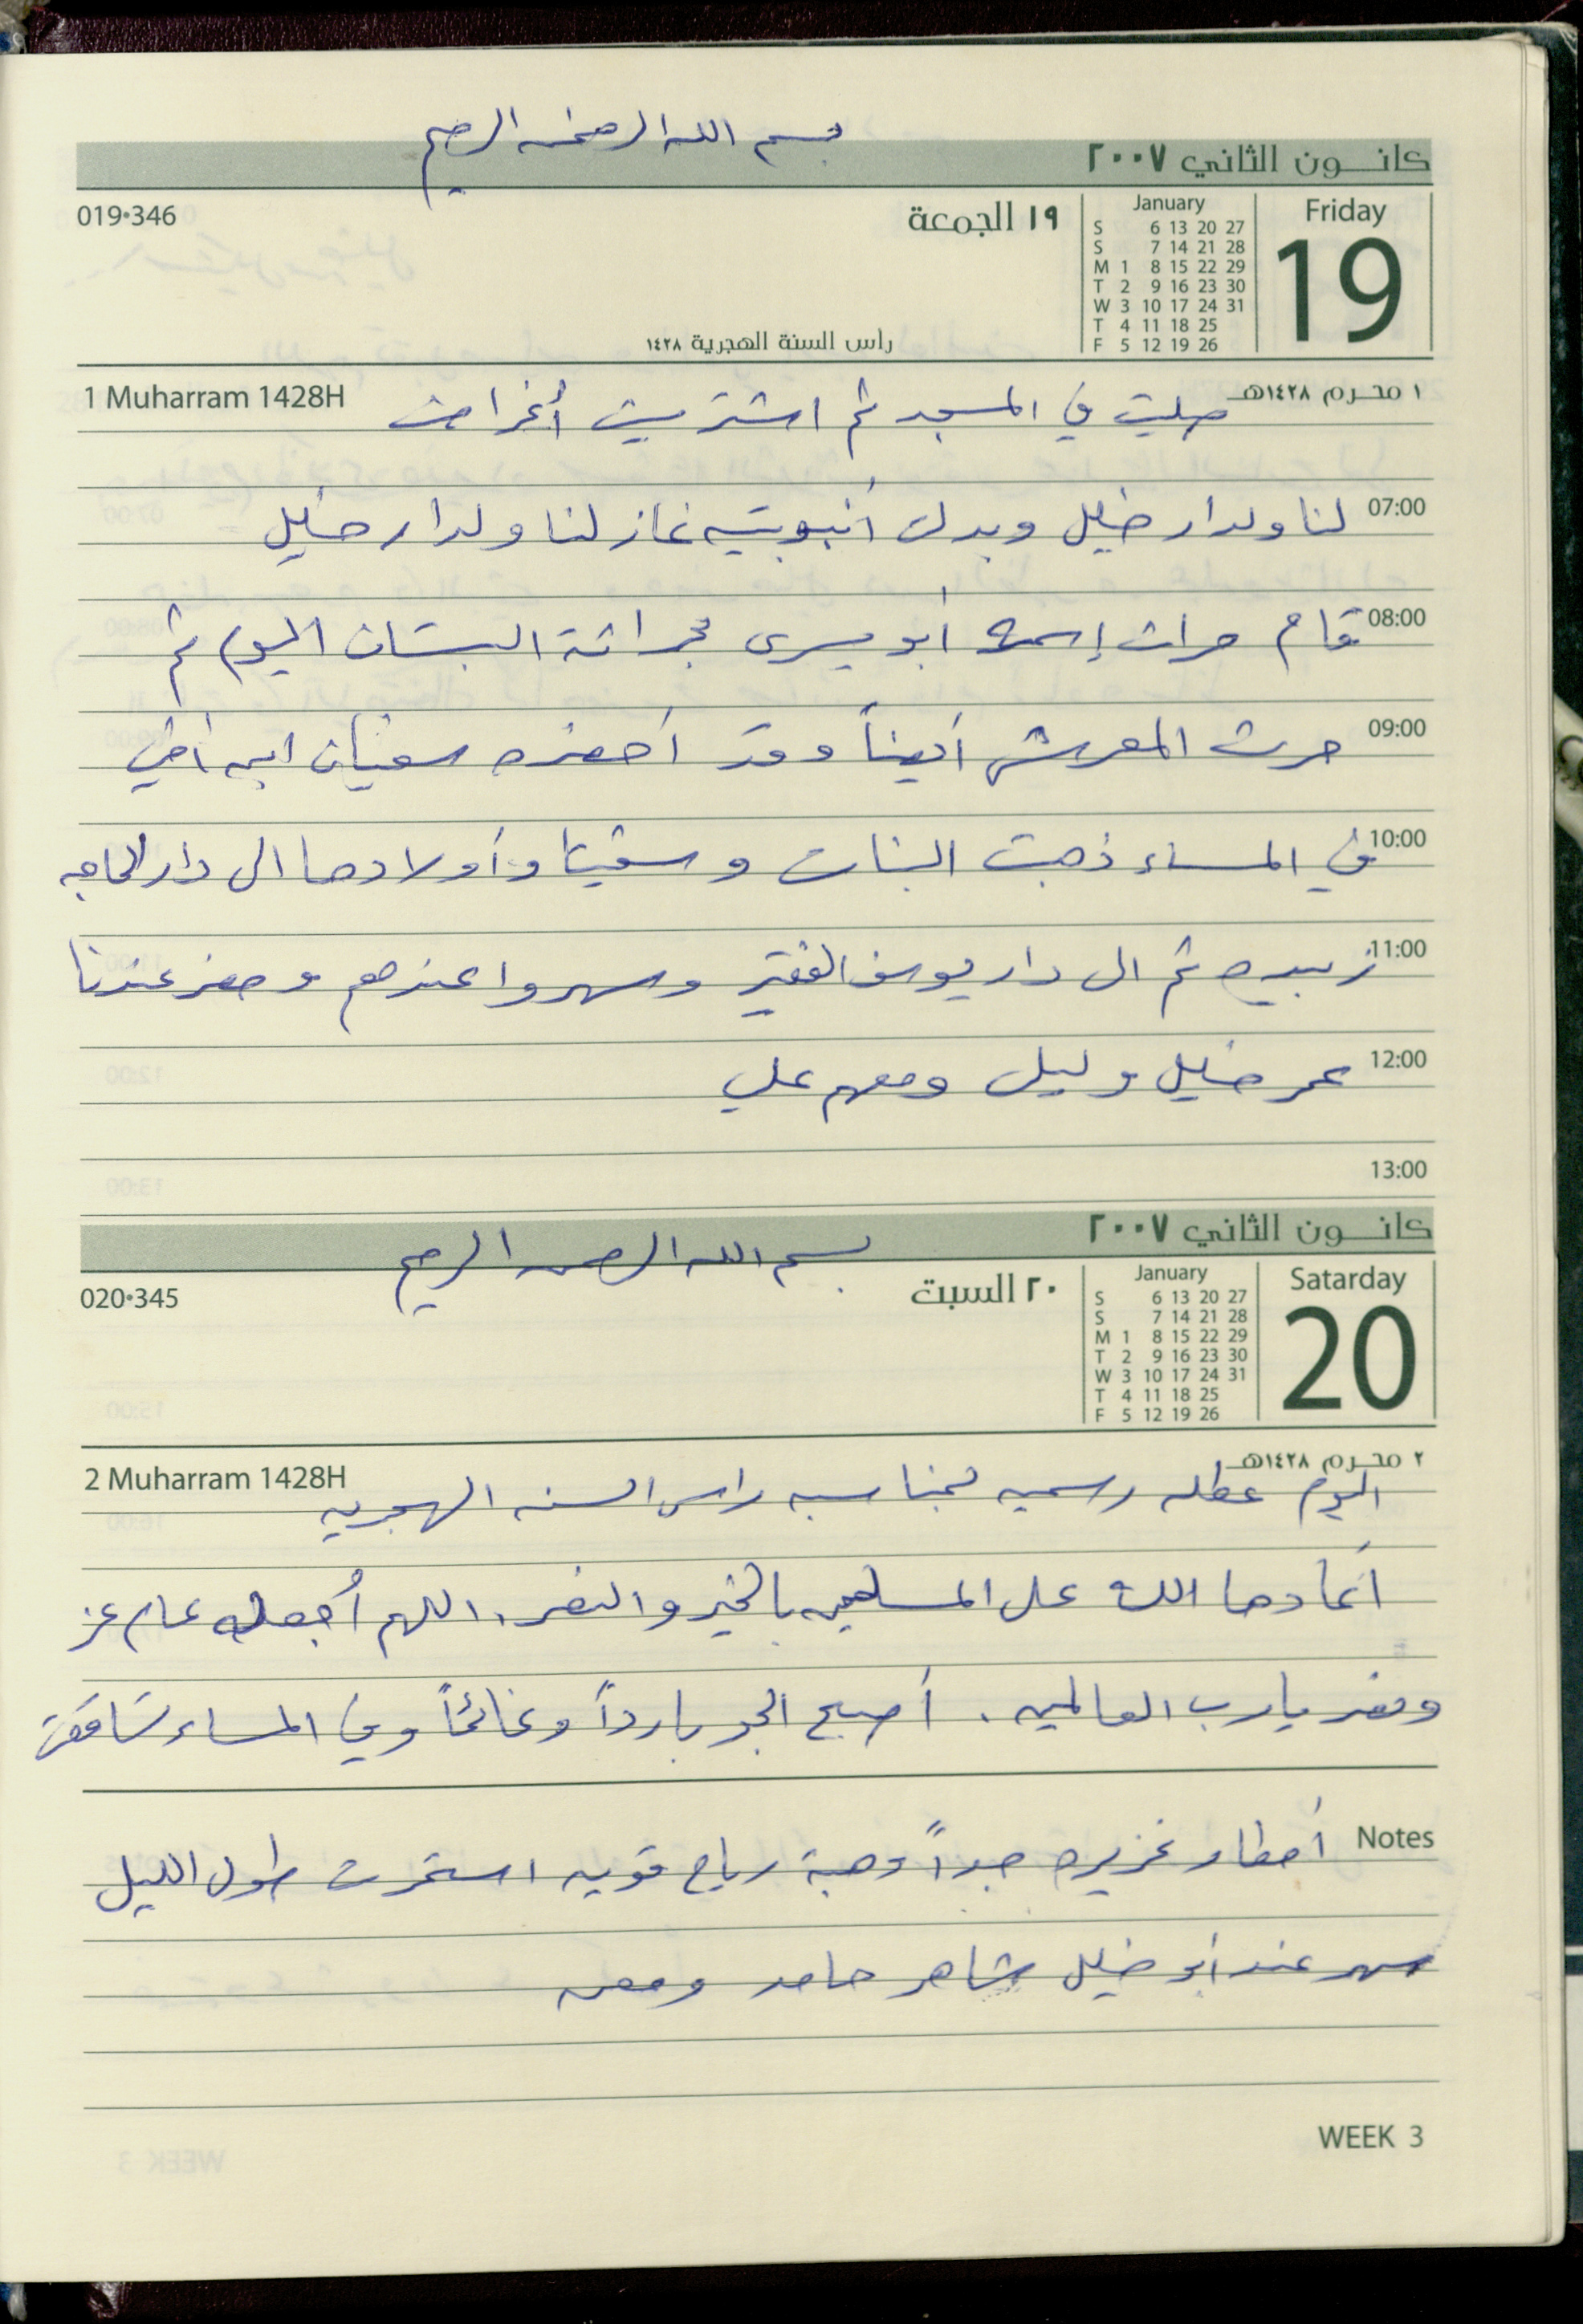 بسم الله الرحمن الرحيم
كانون الثاني ٢٠٠٧
019•346
١٩ الجمعة
January
S 6 13 20 27
S 7 14 21 28
M 1 8 15 22 29
T 2 9 16 23 30
W 3 10 17 24 31
T 4 11 18 25
F 5 12 19 26
Friday
19
رأس السنة الهجرية ١٤٢٨
1 Muharram 1428H
١ محرم ١٤٢٨هـ
صليت في المسجد ثم اشتريت أغراض
07:00 لنا ولدار خليل وبدلت أنبوبتين غاز لنا ولدار خليل
08:00 قام حراث إسمه أبو يسرى بحراثة البستان اليوم ثم
09:00 حرث المعرش أيضاً وقد أحضره سفيان ابن أخي
10:00 في المساء ذهبت البنات و وأولادها الى دار الحاجه
11:00 زبيده ثم الى دار يوسف الفقير وسهروا عندهم وحضر عندنا
12:00 عمر خليل وليلى ومعهم علي
13:00
كانون الثاني ٢٠٠٧
بسم الله الرحمن الرحيم
020•345
٢٠ السبت
January
S 6 13 20 27
S 7 14 21 28
M 1 8 15 22 29
T 2 9 16 23 30
W 3 10 17 24 31
T 4 11 18 25
F 5 12 19 26
Satarday
20
2 Muharram 1428H
٢ محرم ١٤٢٨هـ
اليوم عطله رسميه بمناسبه راس السنه الهجريه
أعادها الله على المسلمين بالخير والنصر. اللهم أجعله عام عز
ونصر يارب العالمين. أصبح الجو بارداً وغائماً وفي المساء تساقطت
Notes أمطار غزيره جداً وهبة رياح قويه استمرت طول الليل
سهر عند أبو خليل شاهر حامد ومعن
WEEK 3